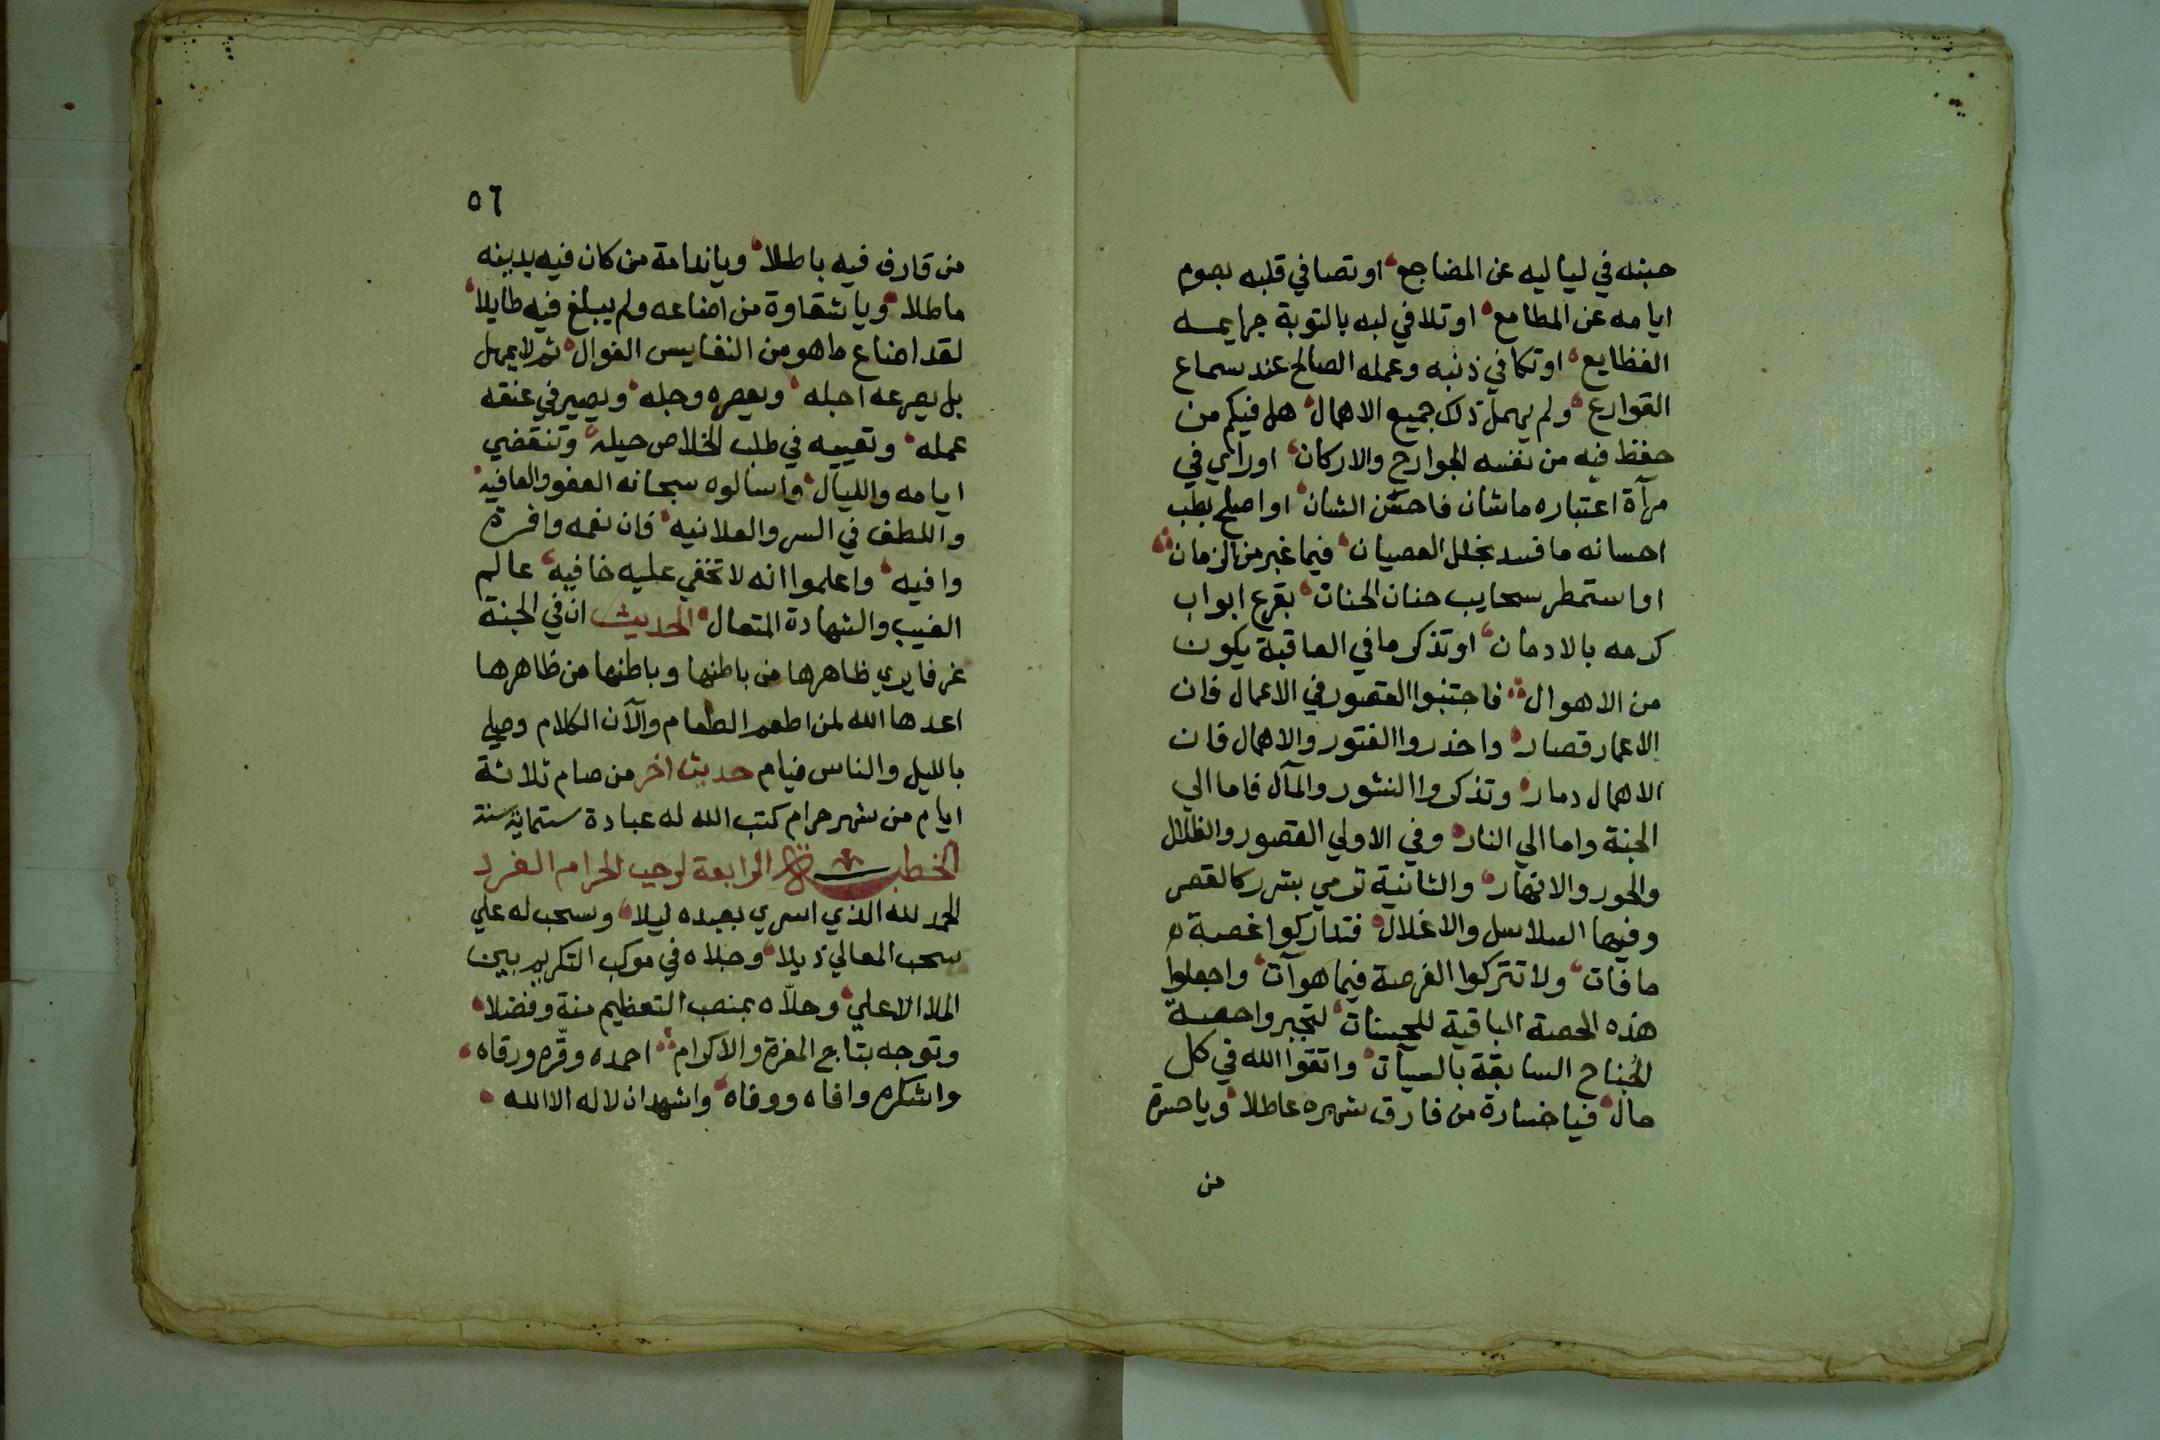 جنبه في لياليه عن المضاجع او تصافي قلبه بصوم
ايامه عن المطامع او تلافي لبه بالتوبة جرايمه
الفظايع او تكافي ذنبه وعمله الصالح عند سماع
القوارع ولم يهمل ذلك جميع الاهمال هل فيكم من
حفظ فيه من نفسه الجوارح والاركان او راي في
مرآة اعتباره ماشان فاحسن الشان او اصلح بطب
احسانه ما فسد بخلل العصيان فيما غبر من الزمان
او استمطر سحايب حنان الحنان بقرع ابواب
كرمه بالادمان او تذكر ما في العاقبة يكون
من الاهوال فاجتنبوا القصور في الاعمال فان
الاعمار قصار واحذروا الفتور والاهمال فان
الاهمال دمار وتذكروا النشور والمآل فاما الي
الجنة واما الي النار وفي الاولي القصور والظلال
والحور والانهار والثانية ترمي بشرر كالقصر
وفيها السلاسل والاغلال فتداركوا غصة
ما فات ولا تتركوا الفرصة فيما هو آت واجعلوا
هذه الحصة الباقية للحسنات لتجبروا حصة
الجناح السابقة بالسيآت واتقوا الله في كل
حال فيا خسارة من فارق شهره عاطلا ويا حسرة
من
٥٦
من قارف فيه باطلا ويا ندامة من كان فيه بدينه
ماطلا ويا شقاوة من اضاعه ولم يبلغ فيه طايلا
لقد اضاع ما هو من النفايس الغوال ثم لا يمهل
بل يصرعه اجله ويعصره وجله ويصير في عنقه
عمله وتعييه في طلب الخلاص حيله وتنقضي
ايامه والليال واسالوه سبحانه العفو والعافية
واللطف في السر والعلانيه فان نعمه وافرة
وافيه واعلموا انه لا تخفي عليه خافيه عالم
الغيب والشهادة المتعال الحديث ان في الجنة
غرفا يري ظاهرها من باطنها وباطنها من ظاهرها
اعدها الله لمن اطعم الطعام والآن الكلام وصلي
بالليل والناس نيام حديث اخر من صام ثلاثة
ايام من شهر حرام كتب الله له عبادة ستماية سنة
الخطبة الرابعة لرجب الحرام الفرد
الحمد لله الذي اسري بعبده ليلا وسحب له علي
سحب المعالي ذيلا وجلاه في موكب التكريم بين
الملا الاعلي وحلاه بمنصب التعظيم منة وفضلا
وتوجه بتاج العزة والاكرام احمده وقره ورقاه
واشكره وافاه ووفاه واشهد ان لا اله الا الله